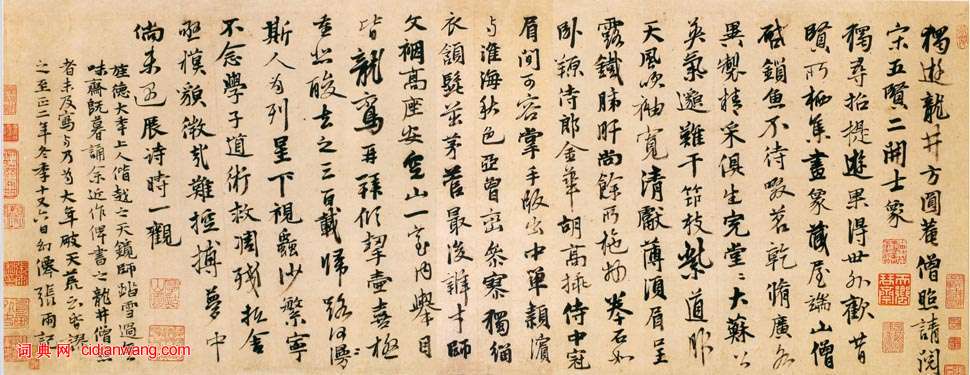 獨遊龍井方圓菴僧照請閱
宋五賢二開士象
獨尋招提遊果得世外歡昔
賢所栖集畫象藏屋端山僧
啟鎖魚不待啜茗乾脩廣各
異製精采俱生完堂堂大蘇公
英氣邈難干筇枝紫道服
天風吹袖寬清獻薄須眉呈
露鐵肺肝尚餘所施物琴石如
臥頳侍郎金華胡高據侍中冠
眉間可容掌手版出中單潁濱
與淮海秋色亞曾巒參寥獨緇
衣頷髭茁茅菅最後辯才師
文裀高座安空山一室內舉目
皆龍鸞再拜傾挈壺喜極
悲酸去之三百載歸路何漫漫
斯人為列星下視蟲沙繁寧
不念學子道術救凋殘拈舍
極摸貌微哉難控摶夢中
倘來過展詩時一觀
維德大孝上人偕越之天鏡師踏雪過
味齋既暮誦余近作俾書之龍井僧照
者未及寫與乃為大年破天荒云
之至正二年冬季十又六日幻僊張雨記
词典网 cidianwang.com